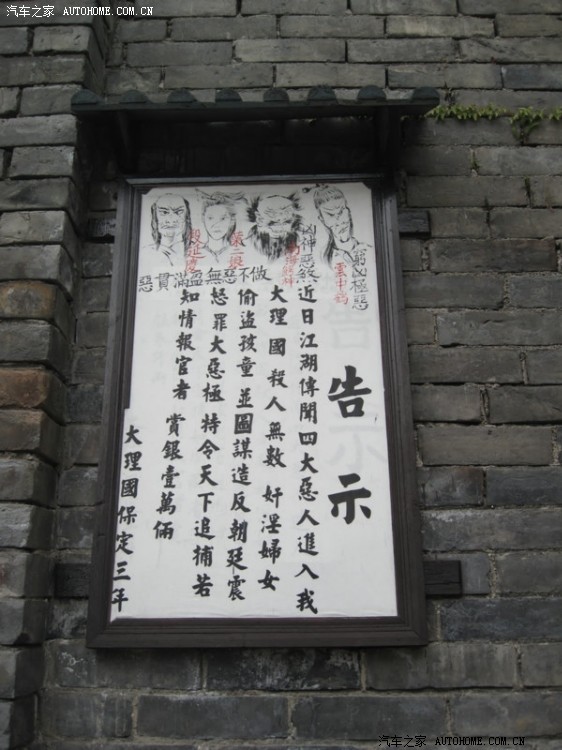 汽车之家 AUTOHOME.COM.CN
汽车之家 AUTOHOME.COM.CN
窮凶極惡
雲中鶴
凶神惡煞
南海鱷神
葉二娘
段延慶
惡貫滿盈無惡不做
告示
近日江湖傳聞四大惡人進入我
大理國 殺人無數 奸淫婦女
偷盜孩童 並圖謀造反朝廷震
怒罪大惡極 特令天下追捕若
知情報官者 賞銀壹萬倆
大理國保定三年
汽车之家 AUTOHOME.COM.CN